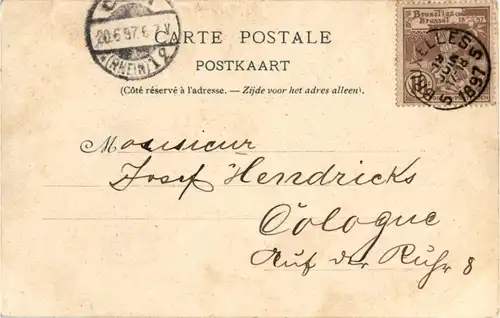 20.6.97.6-7.V.
(RHEIN) 12
CARTE POSTALE
POSTKAART
(Côté réservé à l'adresse. — Zijde voor het adres alleen).
Bruxelles
Brussel 1897
ELLES 5
1897
Monsieur
Josef Hendricks
Cologne
Auf der Ruhr 8